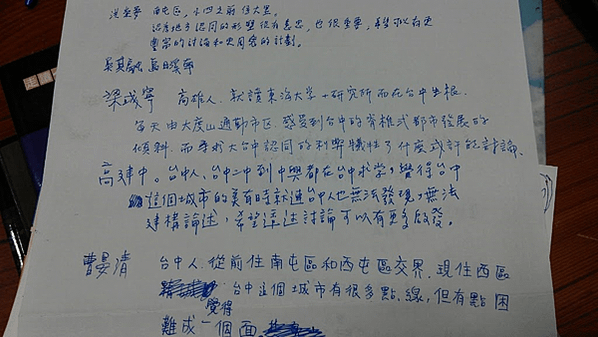 南屯區,
認為地方認同的形塑很有意思,也很重要,希望可以有更
豐富的討論和更周密的計劃。
梁成寧 高雄人,就讀東海大學+研究所而在台中生根.
每天由大度山通勤市區,感受到台中的脊椎式都市發展的
傾斜.而尋求大台中認同的利弊犧牲了什麼或許能討論.
高建中。台中人、台中二中到中興都在台中求學,覺得台中
這個城市的美有時就連台中人也無法發現,無法
建構論述,希望透過討論可以有更多啟發。
曹晏清 台中人.從前住南屯區和西屯區交界.現住西區
覺得台中這個城市有很多點、線,但有點困
難成一個面.